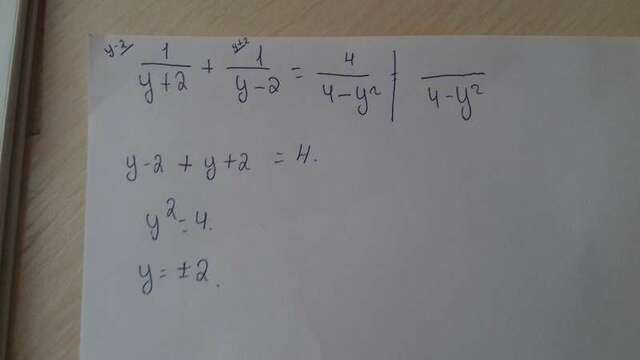 y-2 1/(y+2) + y+2 1/(y-2) = 4/(4-y²) | /(4-y²)
y-2 + y+2 = 4.
y² = 4.
y = ±2.